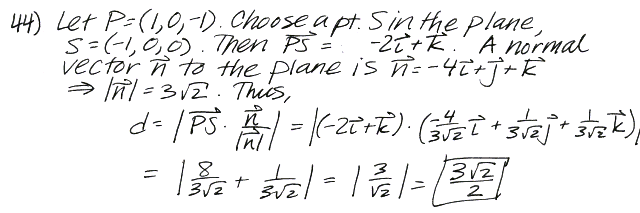 44) Let P=(1,0,-1). Choose a pt. S in the plane,
S=(-1,0,0). Then P⃗S = -2i⃗+k⃗. A normal
vector n⃗ to the plane is n⃗=-4i⃗+j⃗+k⃗
⇒ |n⃗|=3√2. Thus,
d= |P⃗S · n⃗/|n⃗|| = |(-2i⃗+k⃗)·(-4/3√2 i⃗ + 1/3√2 j⃗ + 1/3√2 k⃗)|
= |8/3√2 + 1/3√2| = |3/√2| = 3√2/2